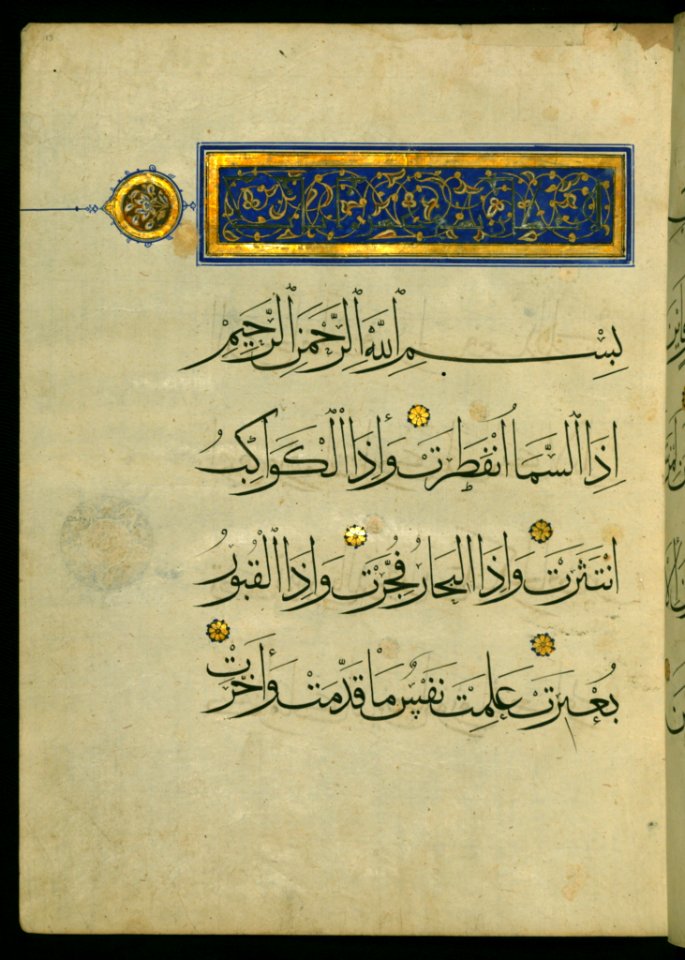 بِسْمِ اللَّهِ الرَّحْمَنِ الرَّحِيمِ
اِذَا السَّمَا اُنْفَطَرَتْ وَأِذَا الْكَوَاكِبُ
انْتَثَرَتْ وَاِذَا البِحَارُ فُجِّرَتْ وَاِذَا الْقُبُورُ
بُعْثِرَتْ عَلِمَتْ نَفْسٌ مَا قَدَّمَتْ وَأَخَّرَتْ